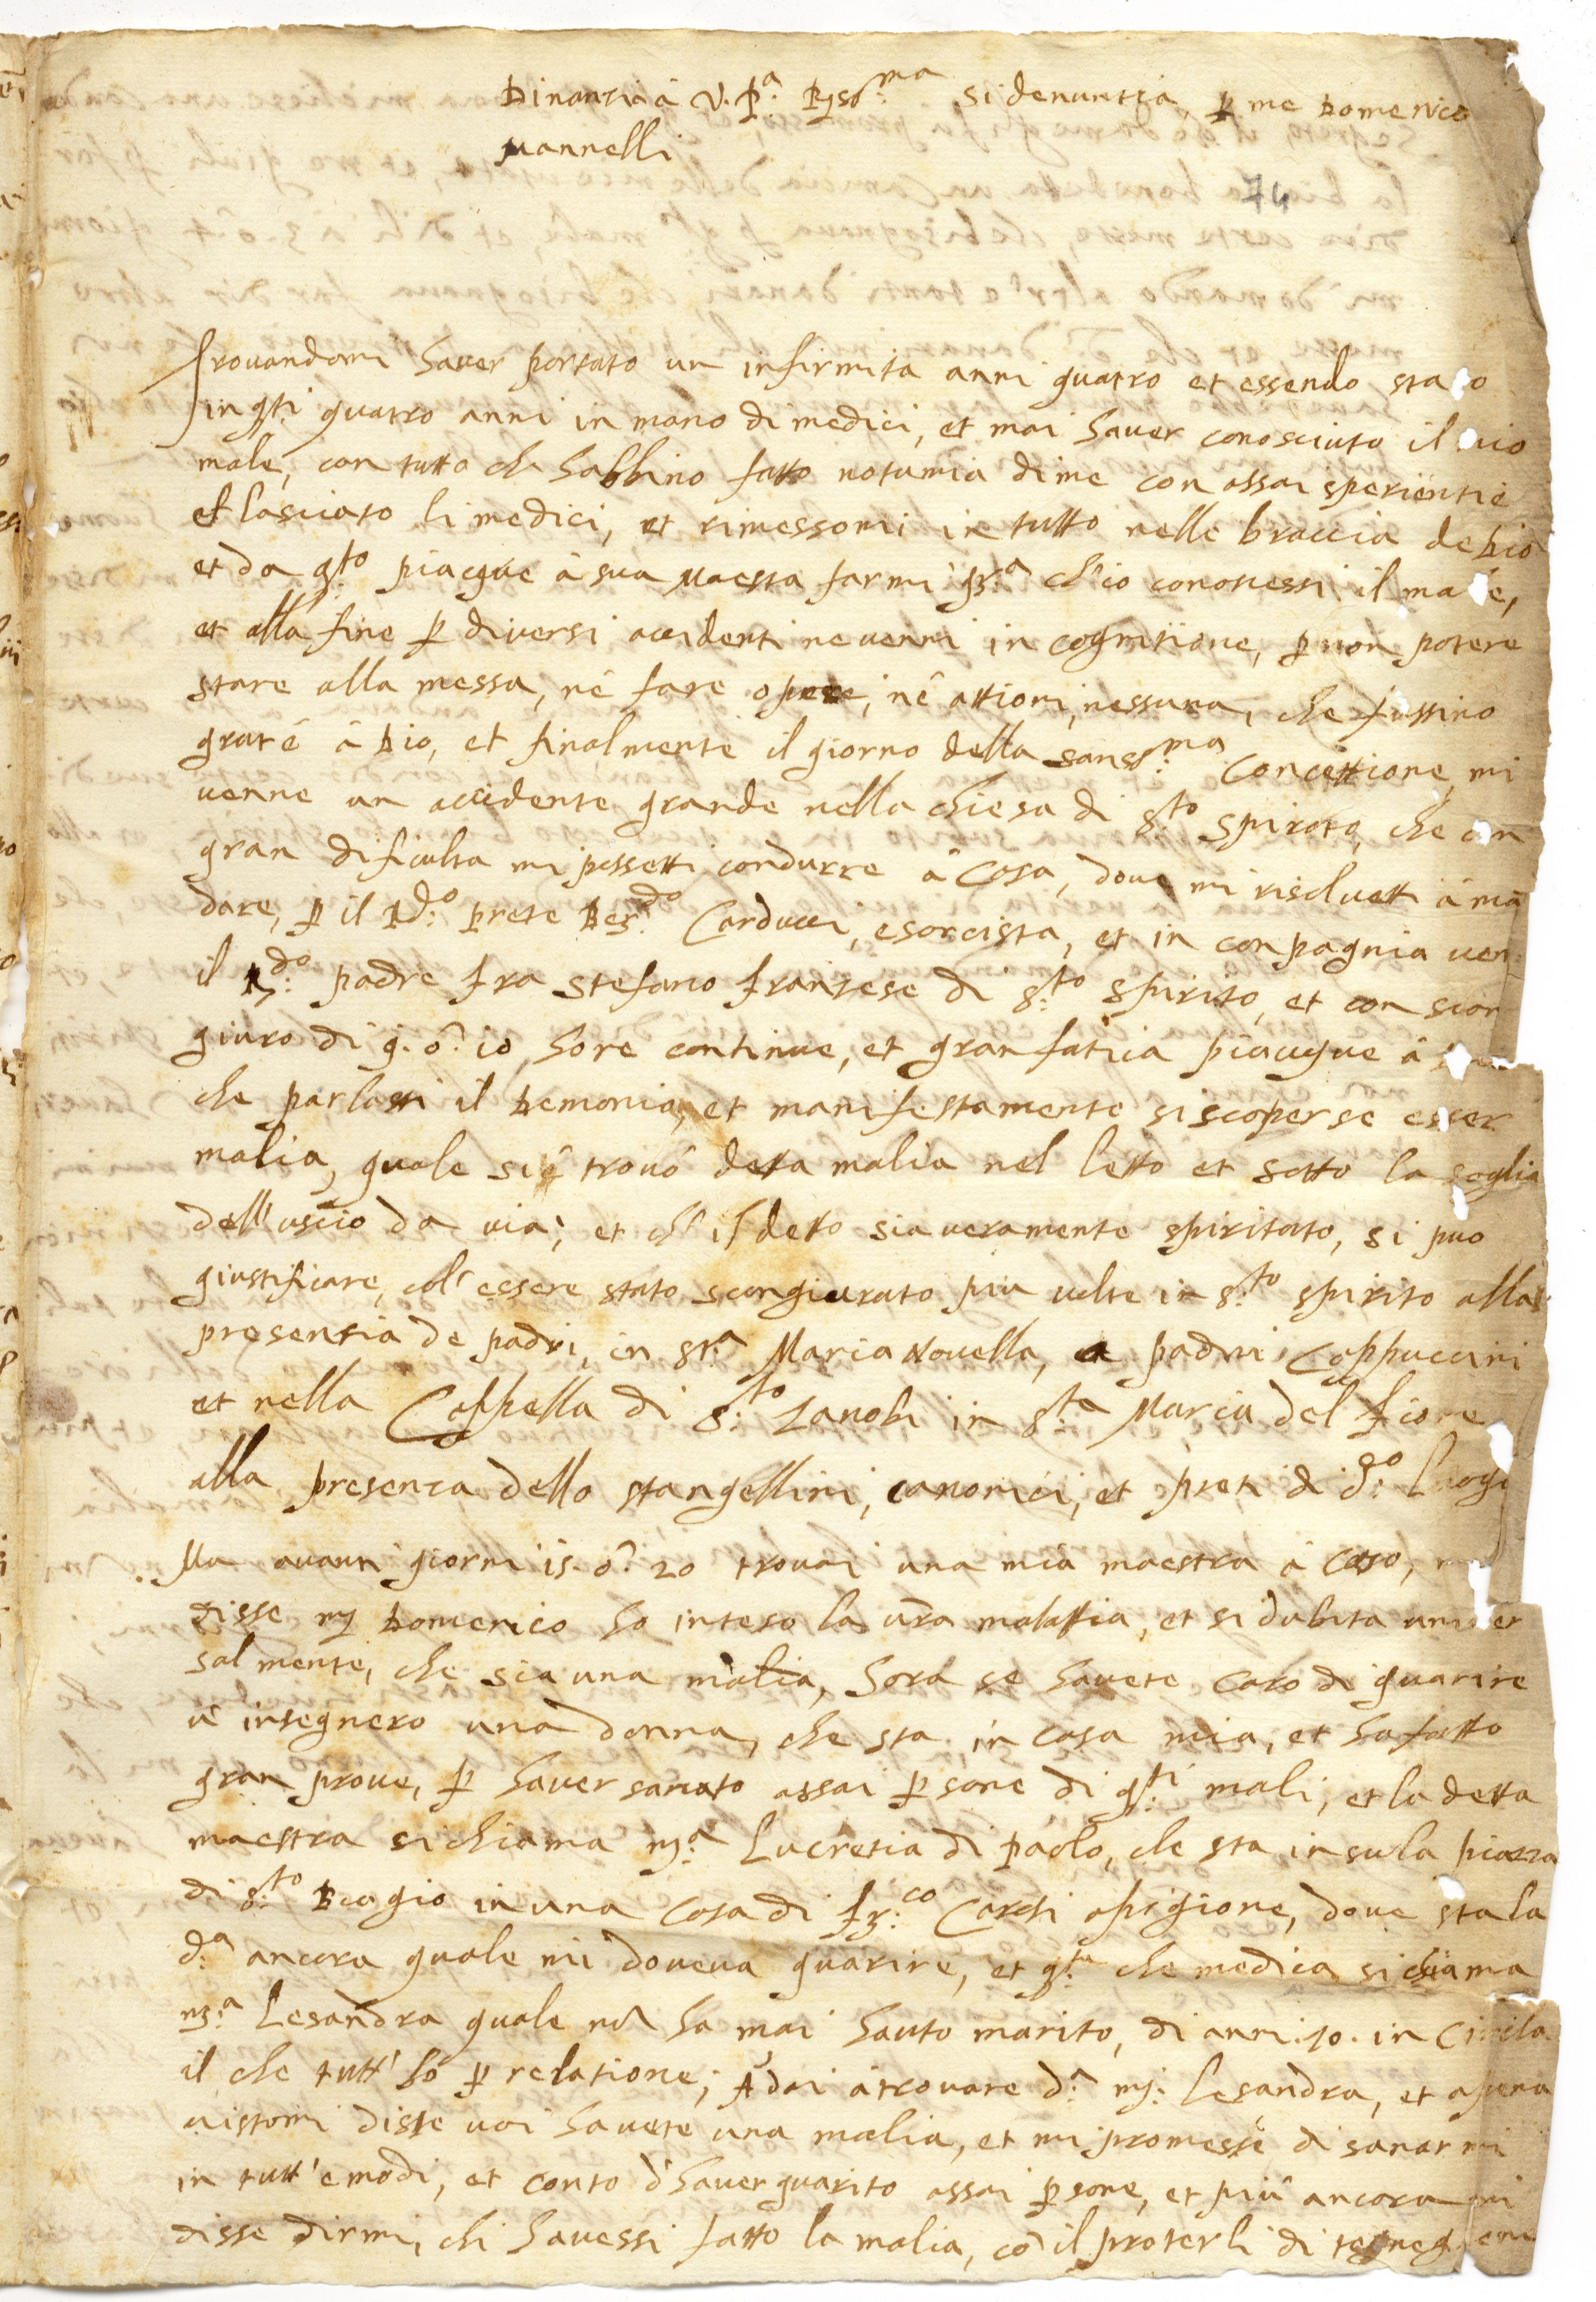 Dinanzi à V. P.a R.ss.ma si denuntia, p me Domenico
Mannelli
74
Trovandomi haver portato un infirmita anni quatro et essendo stato
in q.ti quatro anni in mano di medici, et mai haver conosciuto il mio
male, con tutto ch habbino fatto notumia di me con assai sperientie
et lasciato li medici, et rimessomi in tutto nelle braccia de Dio
et da q.to piacque à sua Maesta farmi gr.a ch'io conoscessi il male,
et alla fine p diversi accidenti ne venni in cognitione, p non potere
stare alla messa, nè fare opere, nè attioni nessuna, che fussino
grate à Dio, et finalmente il giorno della sanss.ma Concettione mi
venne un accidente grande nella chiesa di s.to Spirito, che con
gran dificulta mi possetti condurre à Casa, dove mi risolvetti à mã
dare, p il R.do prete Ber.do Carducci, esorcista, et in conpagnia ven
il R.do padre fra Stefano franzese di s.to Spirito, et con scon
giuro di 9. ò 10 hore continue, et gran faticia piacque à
che parlassi il Demonio, et manifestamente si scoperse esser
malia, quale si è trovò detta malia nel letto et sotto la soglia
dell'uscio da via; et ch' il detto sia veramente spiritato, si puo
giustificare, col' essere stato scongiurato piu volte in s.to Spirito alla
presentia de padri, in st.a Maria Novella, a padri Cappuccini
et nella Cappella di s.to Zanobi in s.ta Maria del fiore
alla presenza dello stangellini, canonici, et preti di d.o Luogo
Ma avanti giorni 15. ò 20 trovai una mia maestra à caso,
disse m. Domenico ho inteso la vra malattia, et si dubita univer
salmente, che sia una malia, hora se havete caro di guarire
v' insegnero una donna, che sta in casa mia, et ha fatto
gran prove, p haver sanato assai psone di q.ti mali, et la detta
maestra si chiama m.a Lucretia di Paolo, che sta in su la piazza
di s.to Biagio in una casa di fr.co Cardi apigione, dove sta la
d.a ancora quale mi doveva guarire, et q.ta che medica si chiama
m.a Lesandra quale nõ ha mai hauto marito, di anni 50. in Circha
il che tutt' hò p relatione; Adai à trovare d.a m. Lesandra, et apena
vistomi disse voi havete una malia, et mi promesse di sanarmi
in tutt' e modi, et conto d'haver guarito assai psone, et più ancora mi
disse dirmi, chi havessi fatto la malia, cõ il proterli di